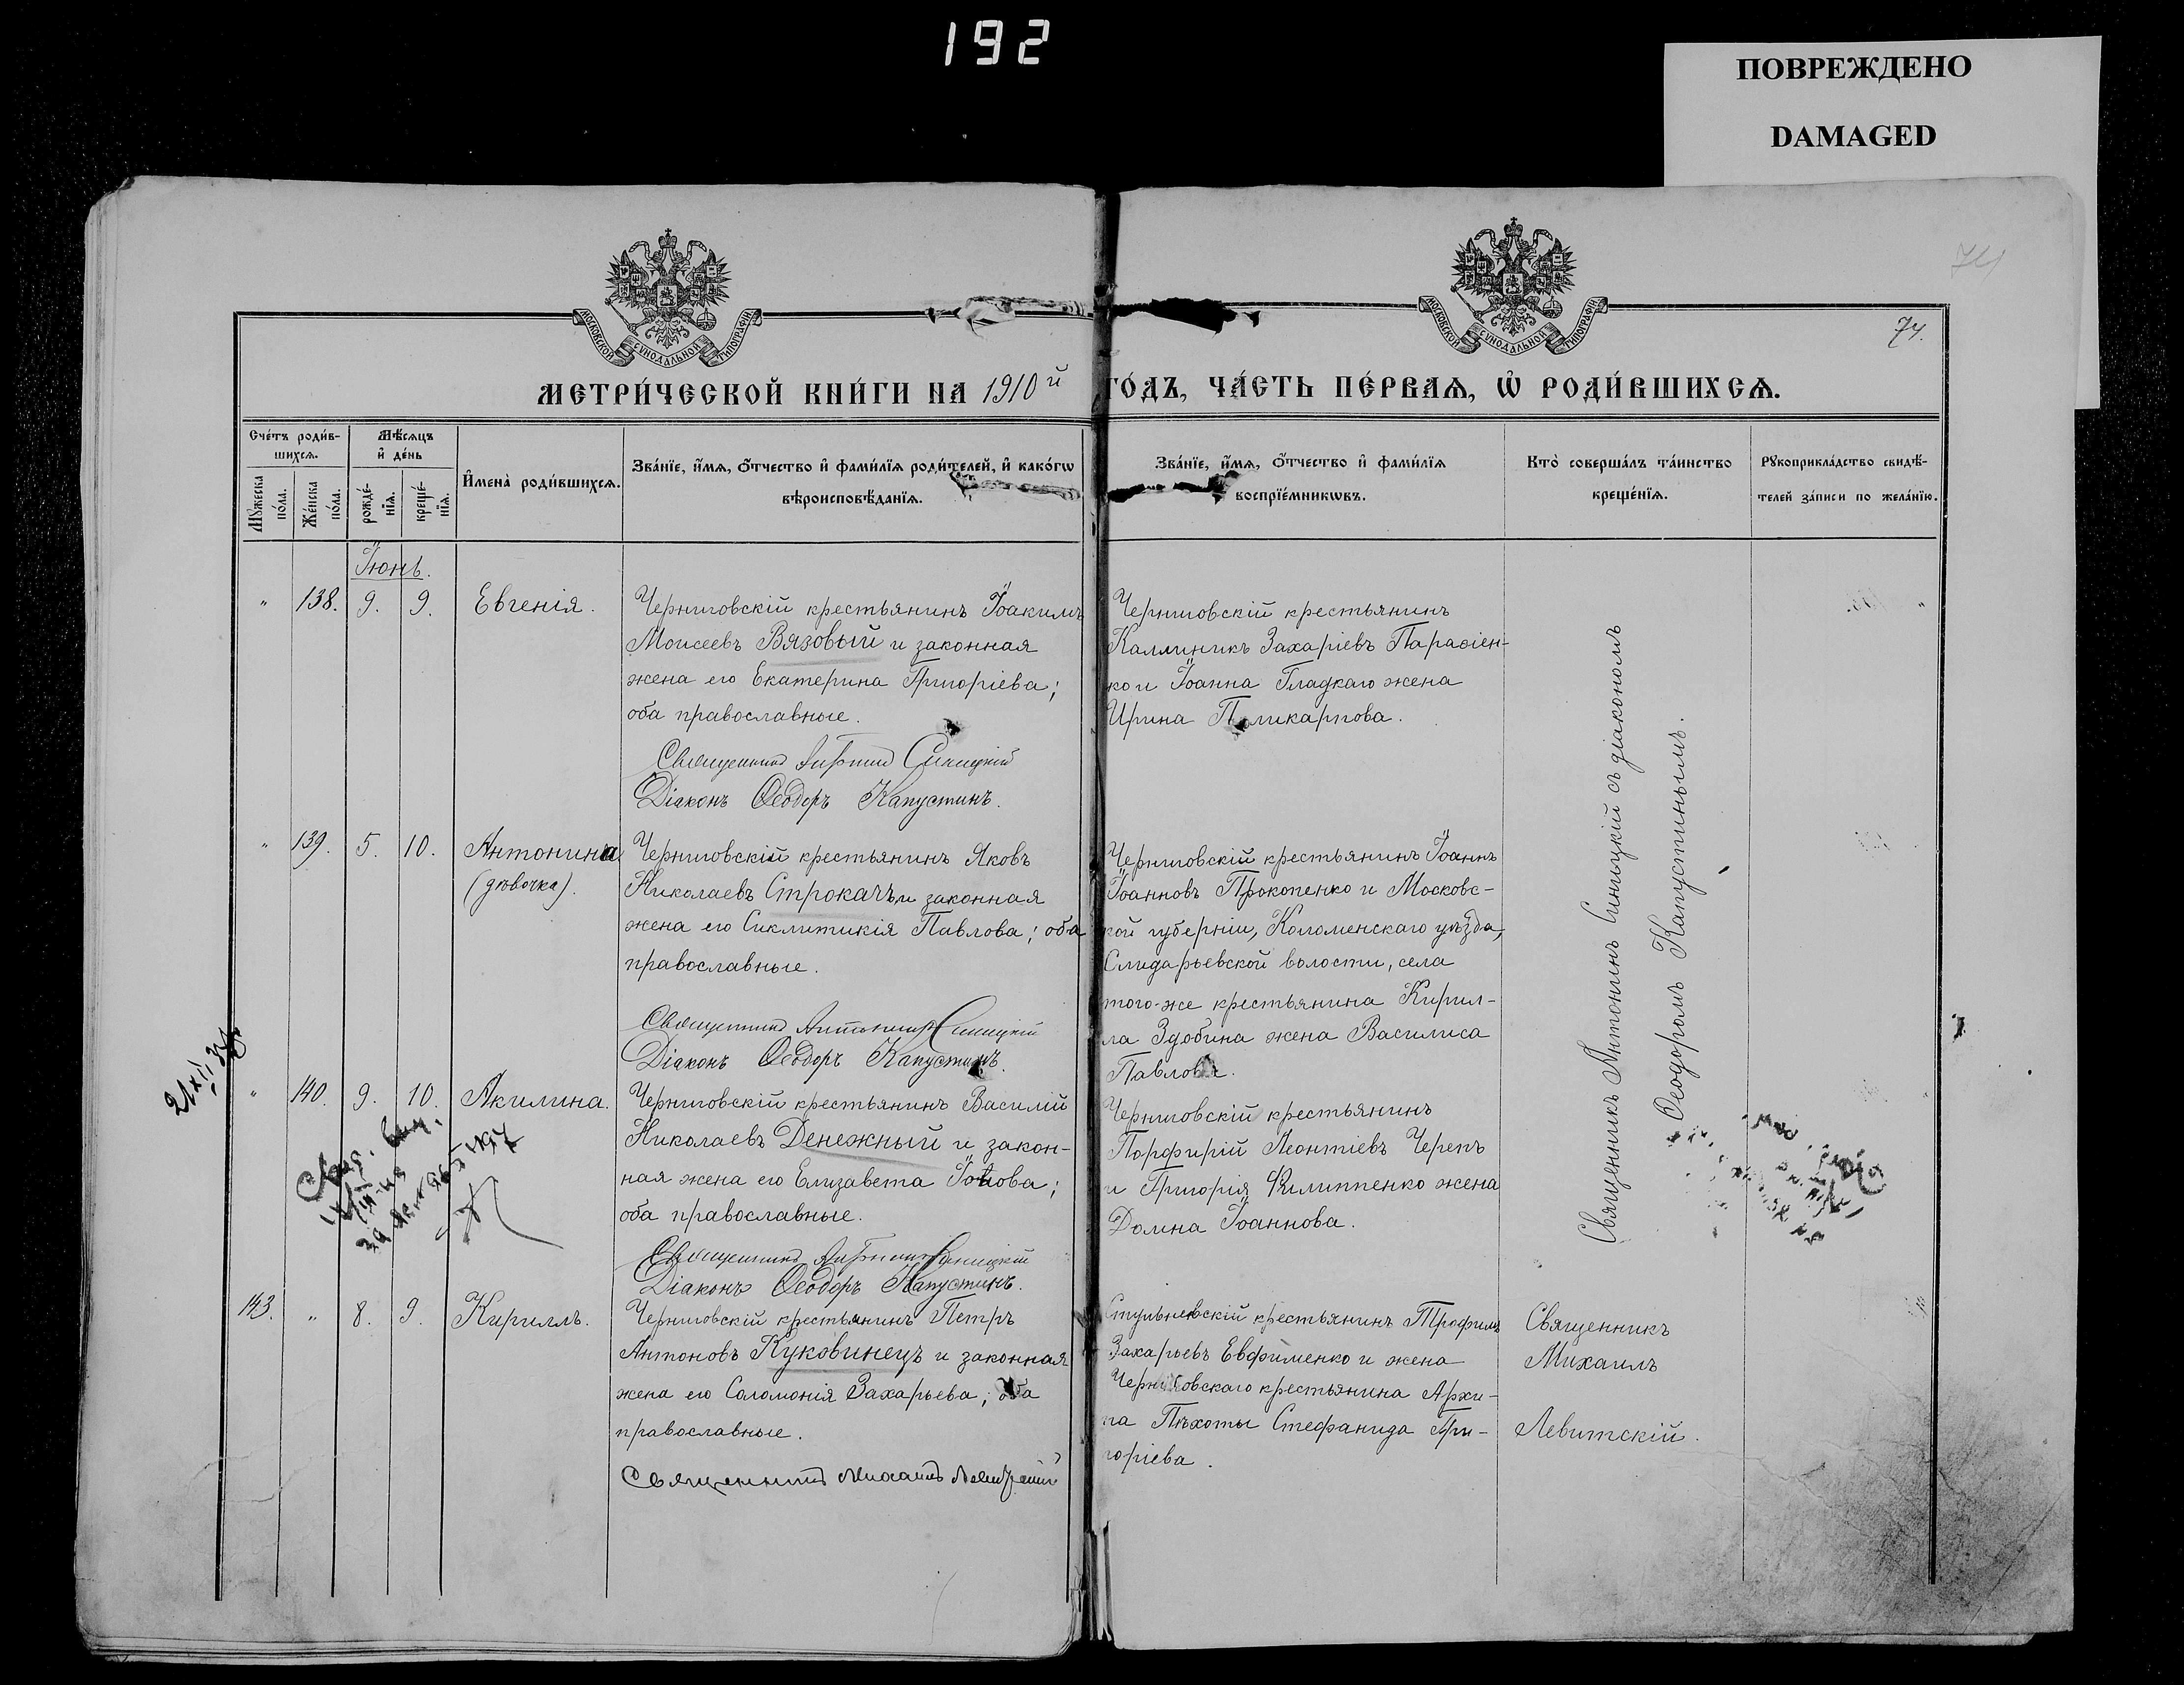 192
ПОВРЕЖДЕНО
DAMAGED
74
74.
МОСКОВСКОЙ СѴНОДАЛЬНОЙ ТИПОГРАФІИ
МОСКОВСКОЙ СѴНОДАЛЬНОЙ ТИПОГРАФІИ
МЕТРИ́ЧЕСКОЙ КНИ́ГИ НА 1910й ГО́ДЪ, ЧА́СТЬ ПЕ́РВАѦ, Ѽ РОДИ́ВШИХСѦ.
Сче́тъ роди́в-
шихсѧ.
Мꙋжеска по́ла.
Же́нска по́ла.
Мѣ́сѧцъ
и҆ де́нь
рожде́-
нїѧ.
креще́-
нїѧ.
И҆мена̀ роди́вшихсѧ.
Зва́нїе, и҆́мѧ, ѻ҆́тчество и҆ фами́лїѧ роди́телей, и҆ како́гѡ
вѣроисповѣ́данїѧ.
Зва́нїе, и҆́мѧ, ѻ҆́тчество и҆ фами́лїѧ
воспрїе́мникѡвъ.
Кто̀ соверша́лъ та́инство
креще́нїѧ.
Рꙋкоприкла́дство свидѣ́-
телей за́писи по жела́нїю.
Іюнь.
" 138. 9. 9. Евгенія.
Черниговскій крестьянинъ Іоакимъ
Моисеевъ Вязовый и законная
жена его Екатерина Григоріева;
оба православные.
Священникъ Антонин Синицкій
Діаконъ Ѳеодоръ Капустинъ.
Черниговскій крестьянинъ
Каллиникъ Захаріевъ Парасіен-
ко и Іоанна Гладкаго жена
Ирина Поликарпова.
Священникъ Антонинъ Синицкій съ діакономъ
Ѳеодоромъ Капустинымъ.
" 139. 5. 10. Антонина
(дѣвочка).
Черниговскій крестьянинъ Яковъ
Николаевъ Строкачъ и законная
жена его Сиклитикія Павлова; оба
православные.
Священникъ Антонин Синицкій
Діаконъ Ѳеодоръ Капустинъ.
Черниговскій крестьянинъ Іоаннъ
Іоанновъ Прокопенко и Московс-
кой губерніи, Коломенскаго уѣзда,
волости, села
того-же крестьянина Кирил-
ла Здобина жена Василиса
Павлова.
" 140. 9. 10. Акилина.
Черниговскій крестьянинъ Василій
Николаевъ Денежный и закон-
ная жена его Елизавета Іовова;
оба православные.
Священникъ Антонин Синицкій
Діаконъ Ѳеодоръ Капустинъ.
Черниговскій крестьянинъ
Порфирій Леонтіевъ Черепъ
и Григорія Филиппенко жена
Домна Іоаннова.
143. " 8. 9. Кириллъ.
Черниговскій крестьянинъ Петръ
Антоновъ Куковинецъ и законная
жена его Соломонія Захарьева; оба
православные.
Священникъ Михаилъ Левитскій
крестьянинъ Трофимъ
Захарьевъ Евфименко и жена
Черниговскаго крестьянина Архи-
па Пѣхоты Стефанида Гри-
горіева.
Священникъ
Михаилъ
Левитскій.